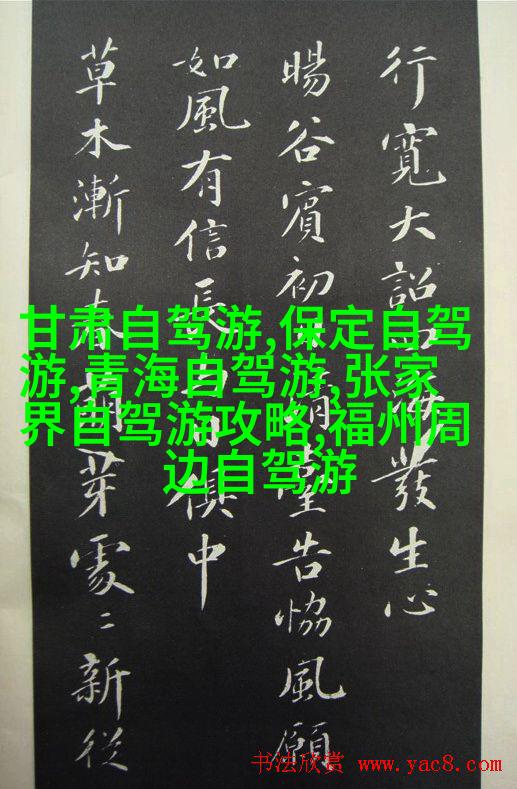 行寬大詔發生心
暘谷賓初臺告恊風願
如風有信長俱中
草木漸知春芽處〻新從
甘肃自驾游,保定自驾
游,青海自驾游,张家
界自驾游攻略,福州周
边自驾游
书法欣赏 www.yac8.com